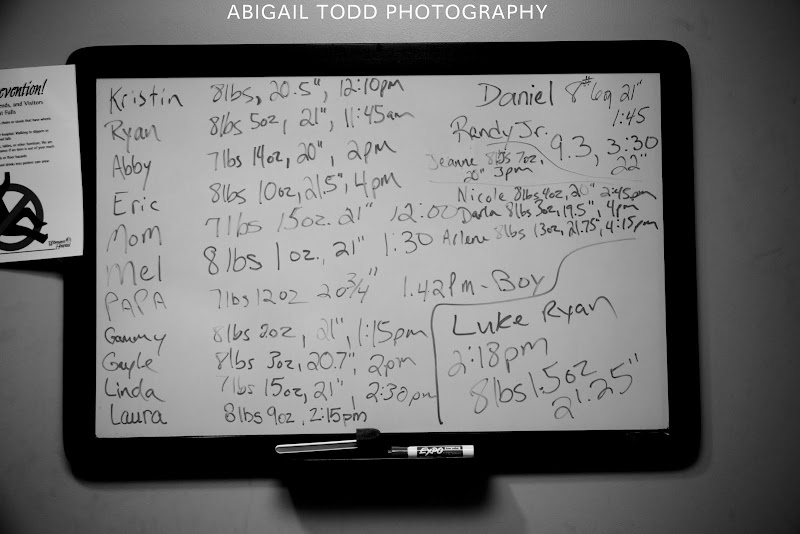 ABIGAIL TODD PHOTOGRAPHY
evention!
ends, and Visitors
t Falls
Kristin 8lbs, 20.5", 12:10pm
Ryan 8lbs 5oz, 21", 11:45am
Abby 7lbs 14oz, 20", 2pm
Eric 8lbs 10oz, 21.5", 4pm
Mom 7lbs 15oz. 21" 12:00
Mel 8lbs 1oz., 21" 1:30
PAPA 7lbs 12oz 20 3/4" 1.42Pm - Boy
Gammy 8lbs 2oz, 21", 1:15pm
Gayle 8lbs 3oz, 20.7", 2pm
Linda 7lbs 15oz, 21", 2:30pm
Laura 8lbs 9oz, 2:15pm
Daniel 8# 21"
1:45
Randy Jr. 9.3, 3:30
22"
Jeanne 8lbs 7oz,
20" 3pm
Nicole 8lbs 4oz, 20" 2:45pm
Darla 8lbs 3oz, 19.5", 4pm
Arlene 8lbs 13oz, 21.75, 4:15pm
Luke Ryan
2:18pm
8lbs 1.5oz
21.25"
EXPO